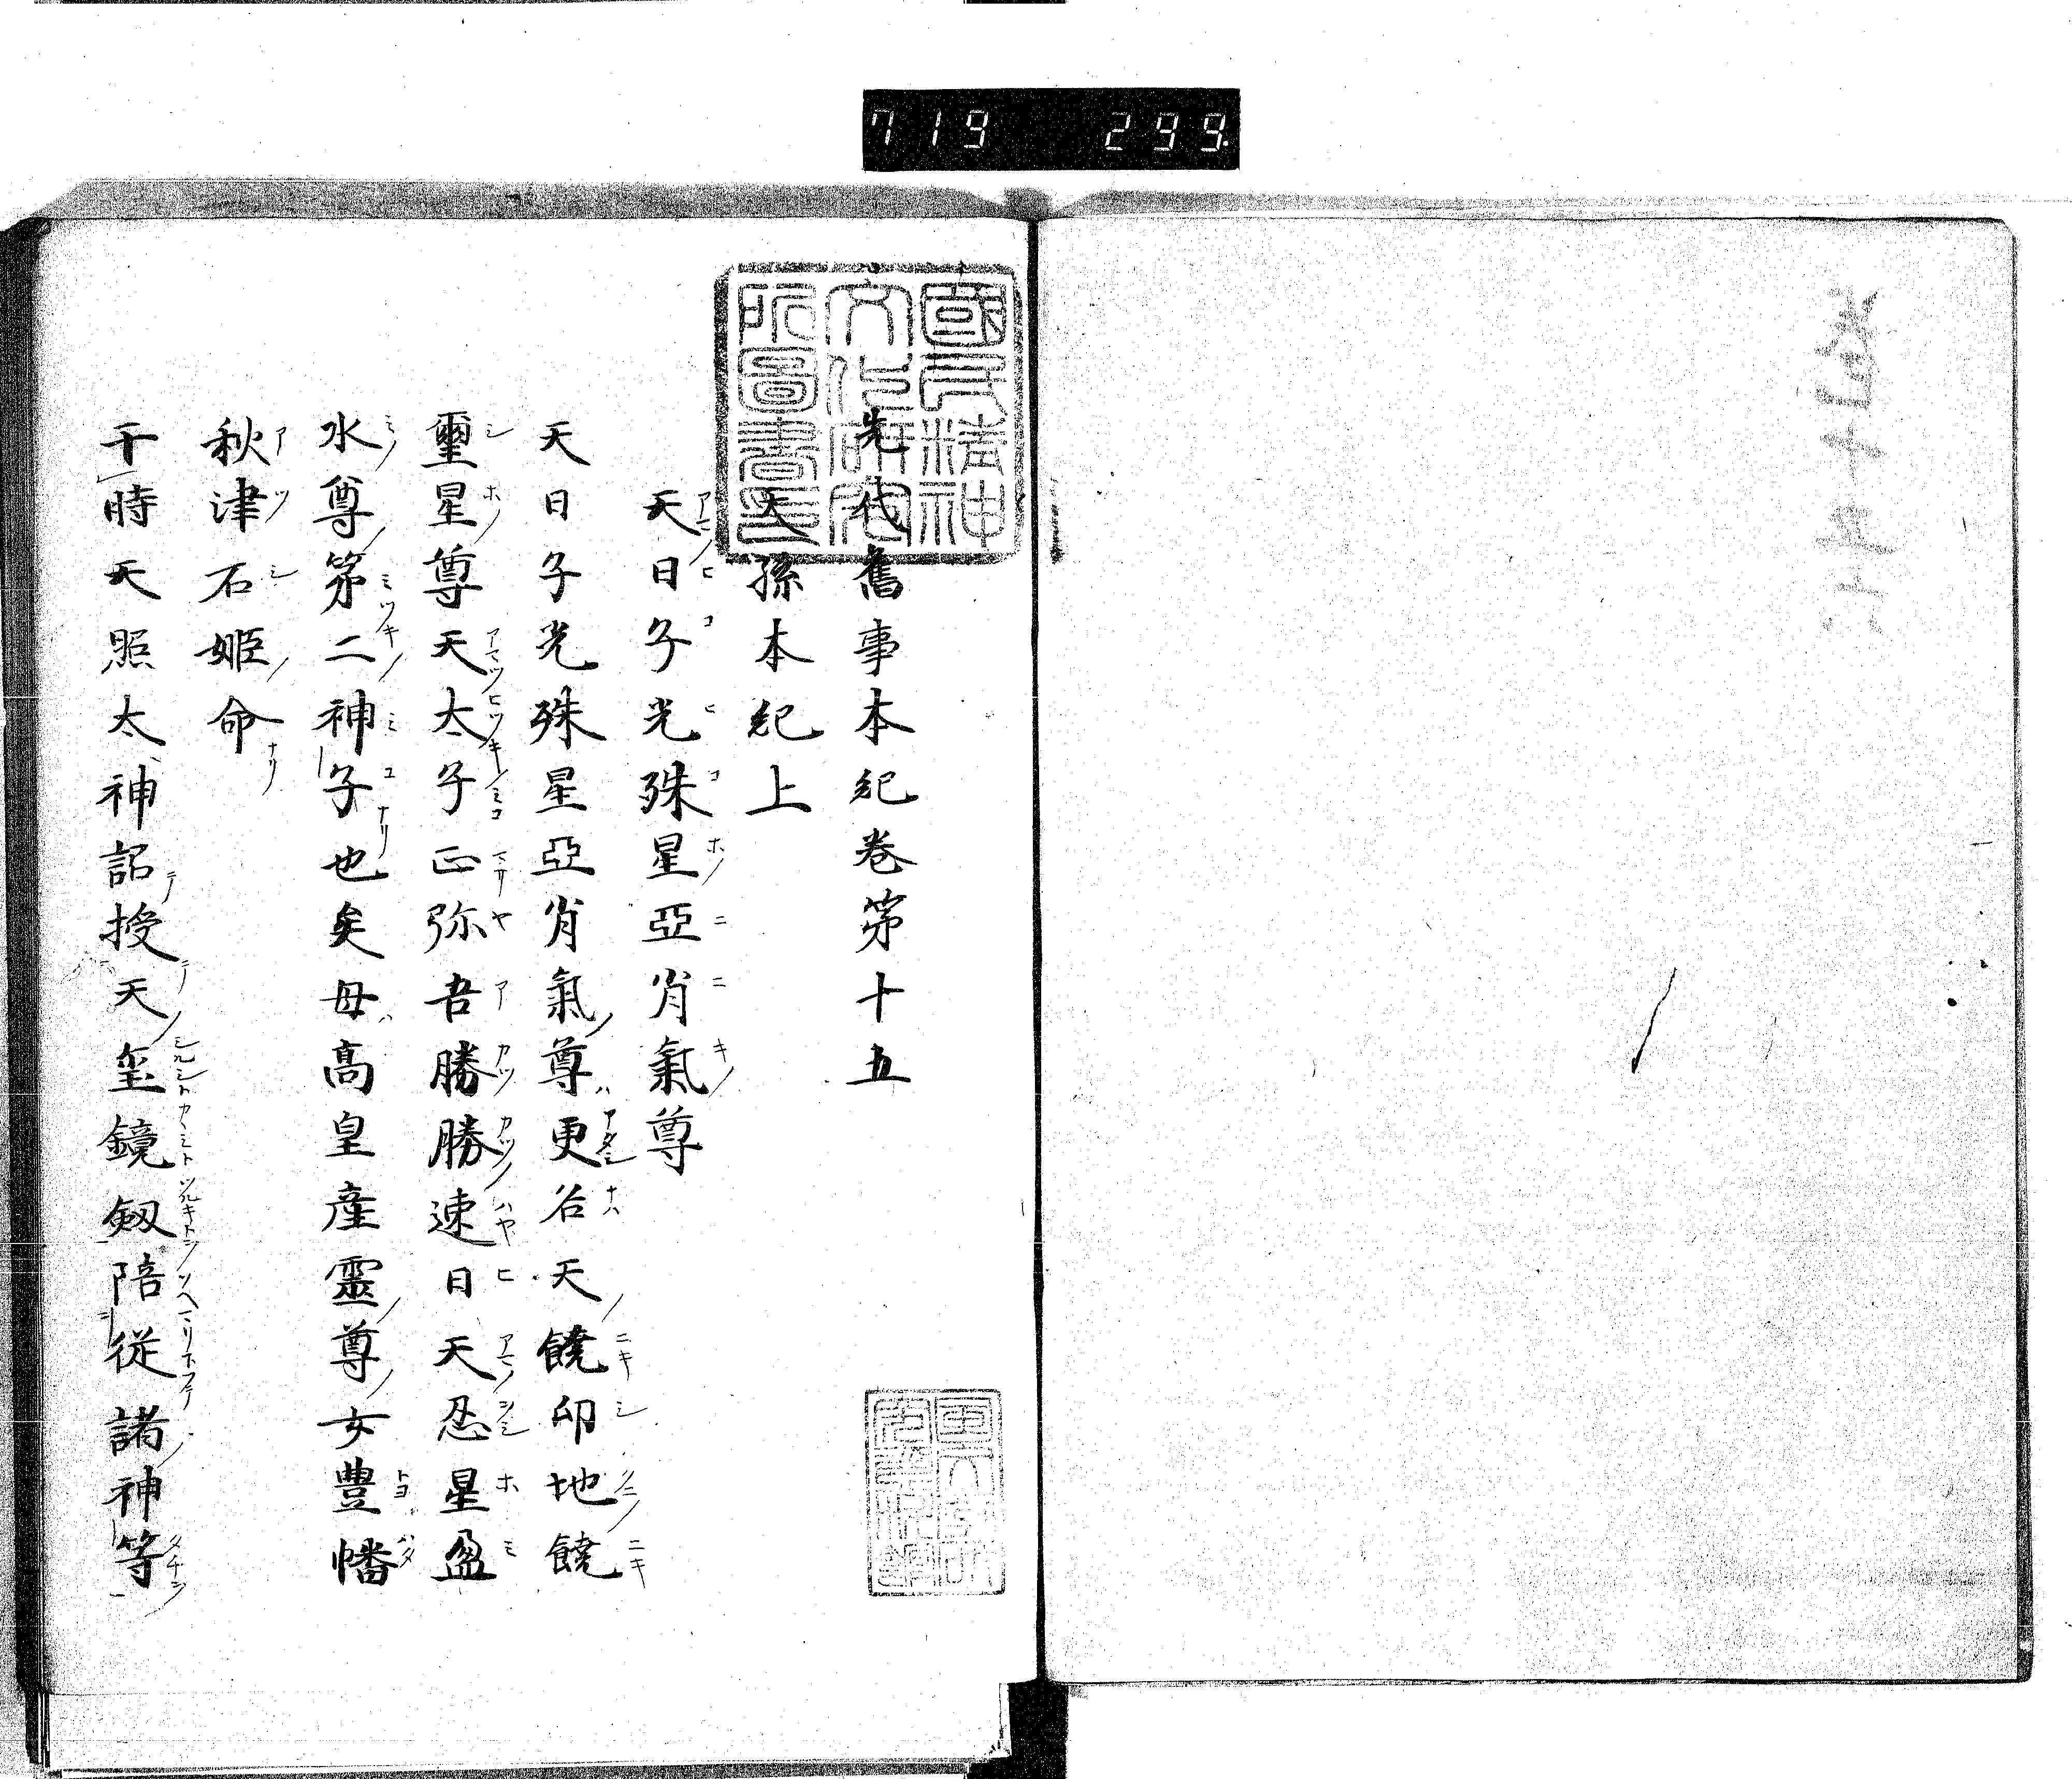 719 299.
國民精神
文化研究
所圖書印
先代舊事本紀卷第十五
天孫本紀上
天日子光殊星亞肖氣尊
天日子光殊星亞肖氣尊更名天饒卬地饒
璽星尊天太子正弥吾勝勝速日天忍星盈
水尊第二神子也矣母高皇産靈尊女豊幡
秋津石姫命
于時天照太神詔授天璽鏡剱陪従諸神等